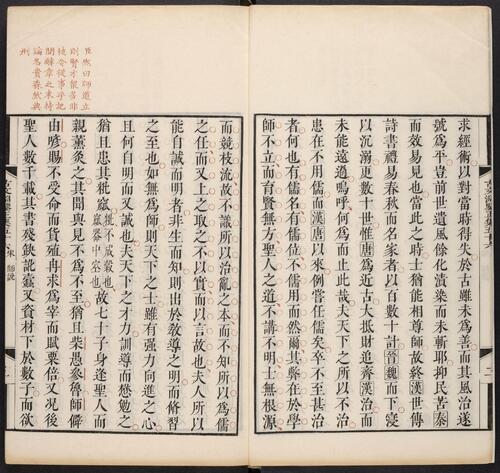 求經術以對當時得失於古雖未爲善而其風治遂
號爲平豈前世遺風餘化漬染而未斬耶抑民苦秦
而效易見也當此之時士猶能相尊師故終漢世傳
詩書禮易春秋而名家者以百數十計晉魏而下寖
以沉溺更數十世惟唐爲近古大抵財追齊漢治而
未能遠過嗚呼何爲而止此哉夫天下之所以不治
患在不用儒而漢唐以來例嘗任儒矣卒不至甚治
者何也有儒名有儒位不儒用而然爾其弊在於學
師不立而育賢無方聖人之道不講不明士無根源
臣熙曰師道立
則賢才衆若非
徒令從事乎記
聞辭章之末持
論名貴森然典
刑
而競枝流故不識所以治亂之本而不知所以爲儒
之任而又上之取之不以實而以言故也夫人所以
能自誠而明者非生而知則出於敎導之明而脩習
之至也如無爲師則天下之士雖有强力向進之心
且何自明而又誠也夫天下之才力訓導而懋勉之
猶且患其粃窳粃不成穀也窳器中空也故七十子身逢聖人而
親薰炙之其間與見不爲不至猶且柴愚參魯師僻
由喭賜不受命而貨殖冉求爲宰而賦粟倍又况後
聖人數千載其書殘缺訛蠹又資材下於數子而欲
宋 師說